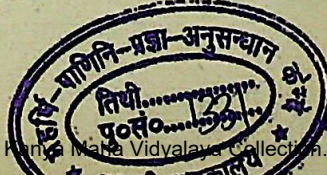 महर्षि-पाणिनि-प्रज्ञा-अनुसन्धान
तिथी..............
पु०सं०.....1331......
Kanya Maha Vidyalaya Collection.